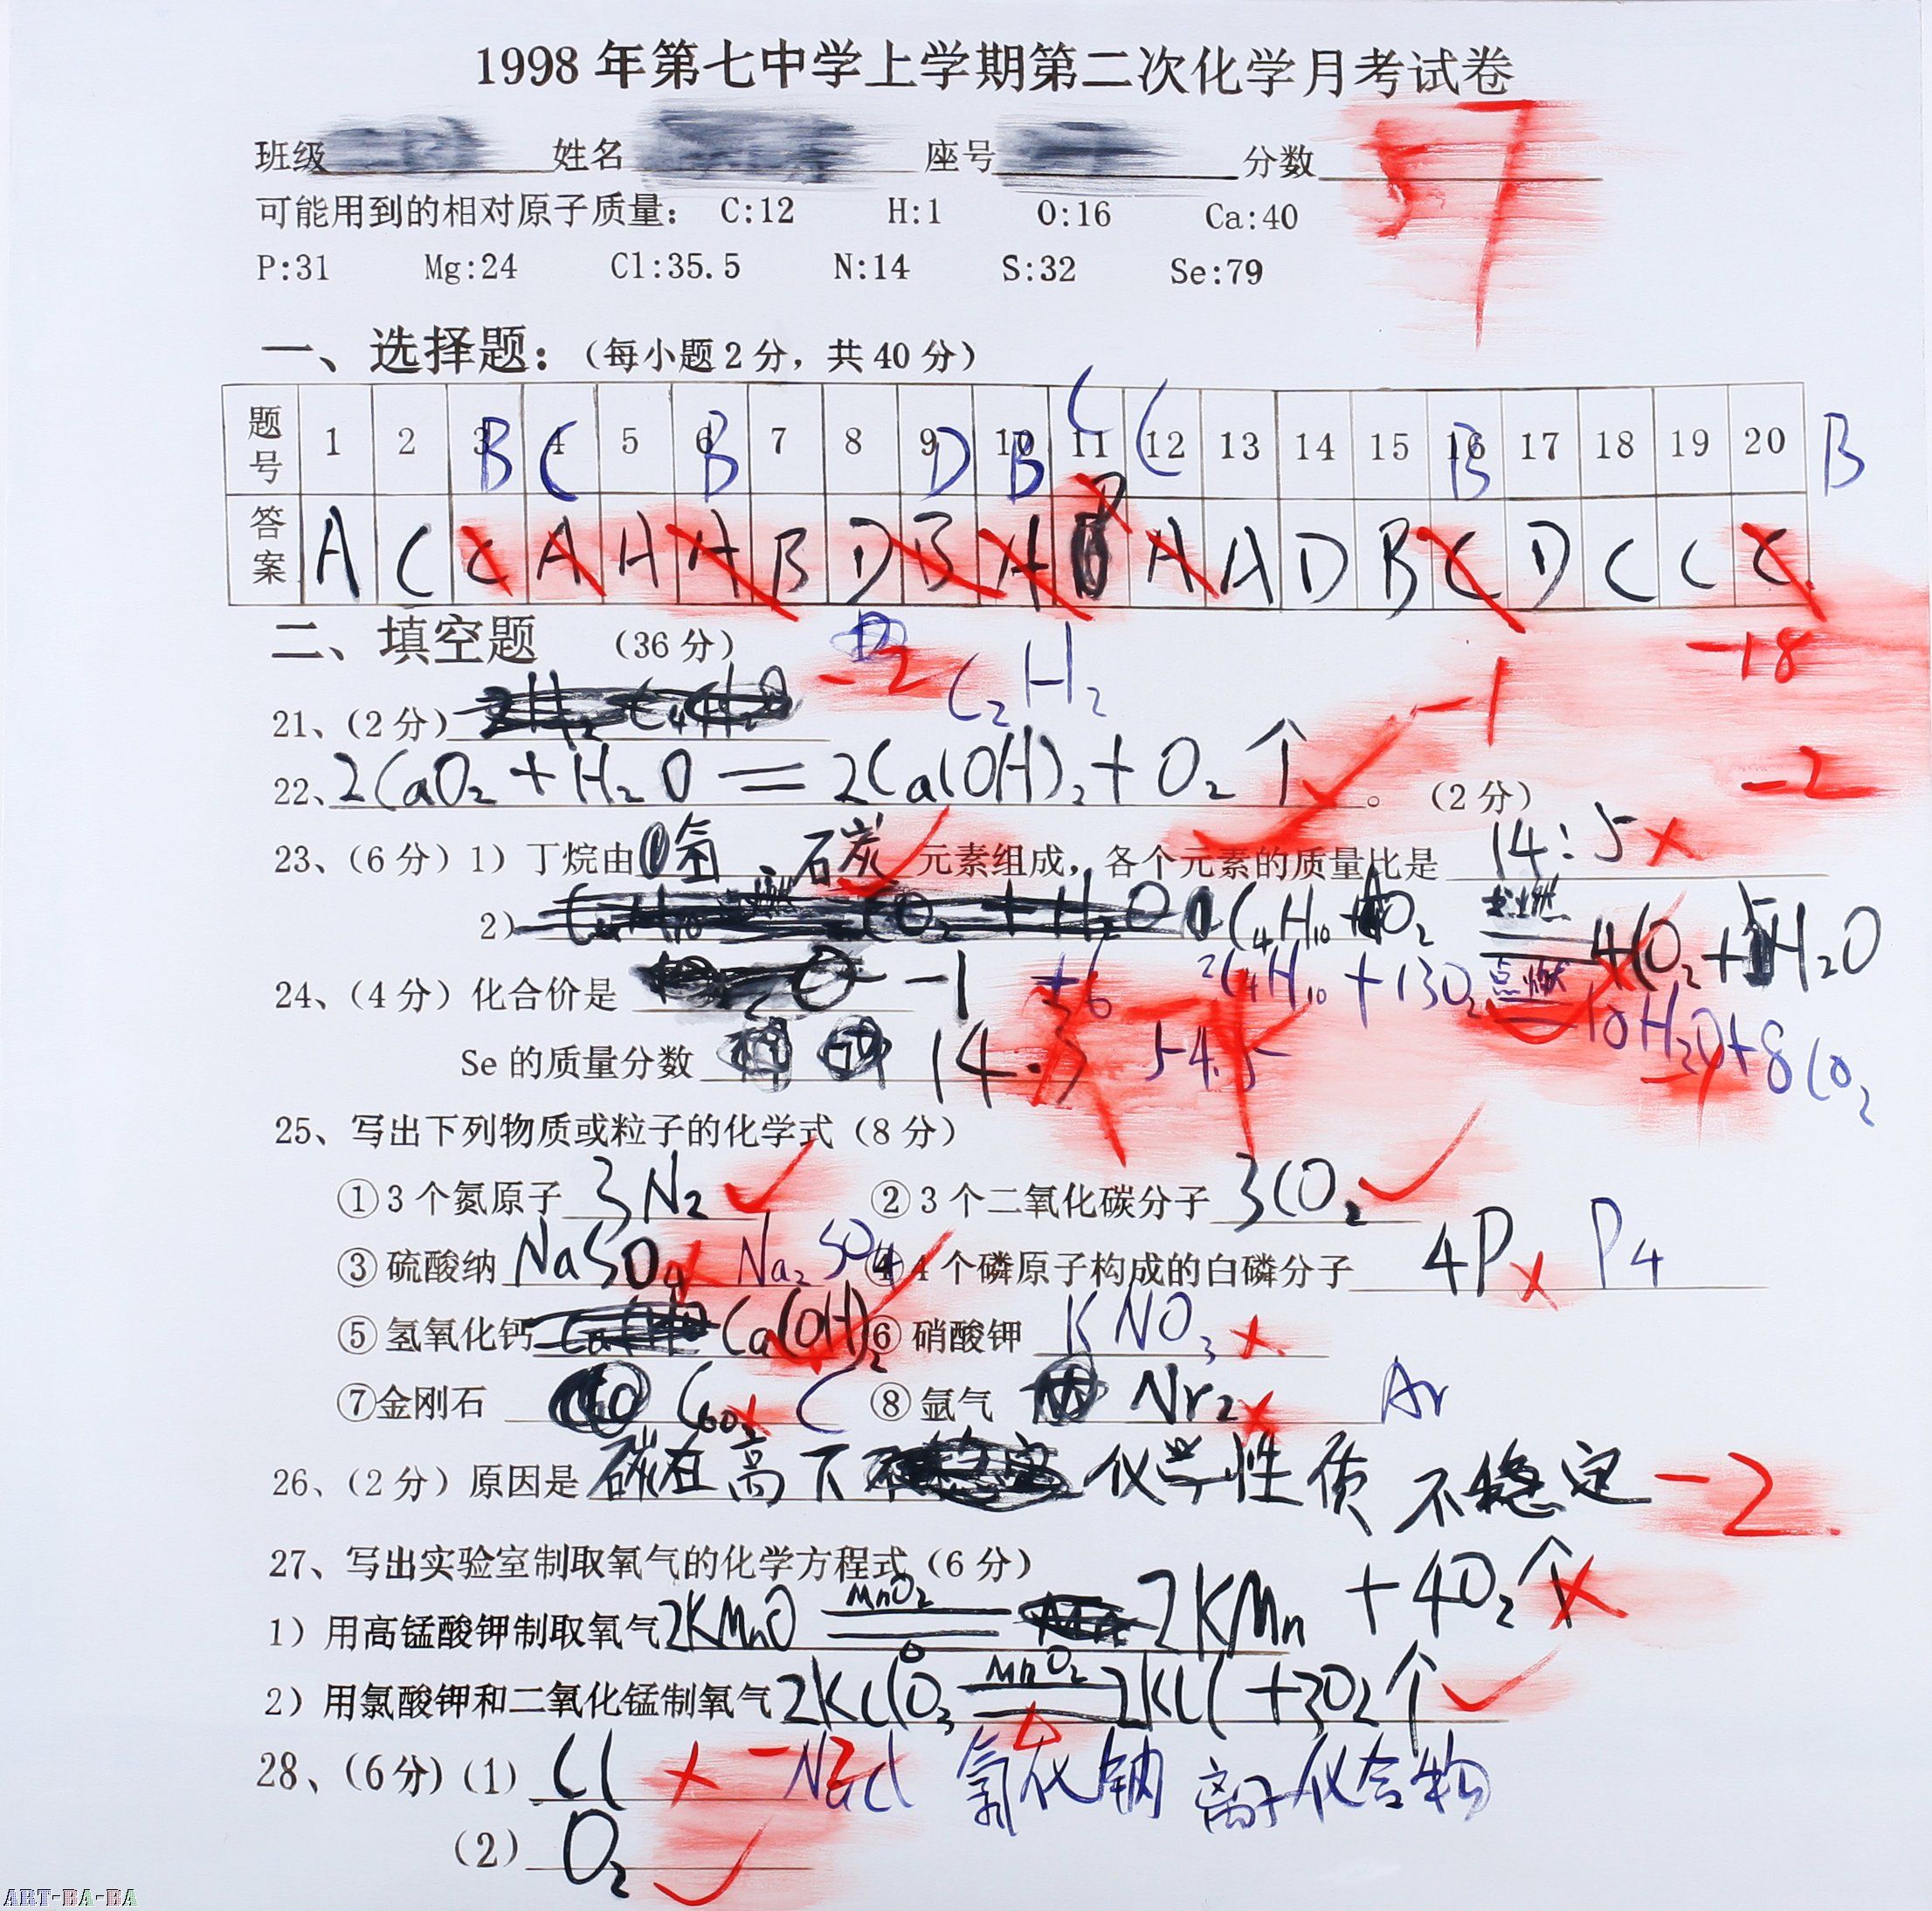 1998年第七中学上学期第二次化学月考试卷
班级 姓名 座号 分数 57
可能用到的相对原子质量： C:12 H:1 O:16 Ca:40
P:31 Mg:24 Cl:35.5 N:14 S:32 Se:79
一、选择题：（每小题2分，共40分）
B C B D B C C B B
题号 1 2 3 4 5 6 7 8 9 10 11 12 13 14 15 16 17 18 19 20
答案 A C C A A A B D B A D A A D B C D C C C
-18
二、填空题 （36分）
-2 C₂H₂ -1
21、（2分）
-2
22、2CaO₂+H₂O=2Ca(OH)₂+O₂↑。（2分）
23、（6分）1）丁烷由氢、石炭元素组成，各个元素的质量比是 14:5
2） C₄H₁₀+O₂ 点燃 4CO₂+5H₂O
2C₄H₁₀+13O₂ 点燃 10H₂O+8CO₂
24、（4分）化合价是 -1 +6
Se的质量分数 14.7 54.5
25、写出下列物质或粒子的化学式（8分）
①3个氮原子 3N₂ ②3个二氧化碳分子 3CO₂
③硫酸纳 NaSO₄ Na₂SO₄ ④4个磷原子构成的白磷分子 4P P₄
⑤氢氧化钙 Ca(OH)₂ ⑥硝酸钾 KNO₃
⑦金刚石 C₆₀ C ⑧氩气 Nr₂ Ar
26、（2分）原因是 碳在高下 化学性质不稳定 -2
27、写出实验室制取氧气的化学方程式（6分）
1）用高锰酸钾制取氧气 2KMnO MnO₂ 2KMn+4O₂↑
2）用氯酸钾和二氧化锰制氧气 2KClO₃ MnO₂ △ 2KCl+3O₂↑
28、（6分）（1） Cl -2 NaCl 氯化钠 离子化合物
（2） O₂
ART-BA-BA